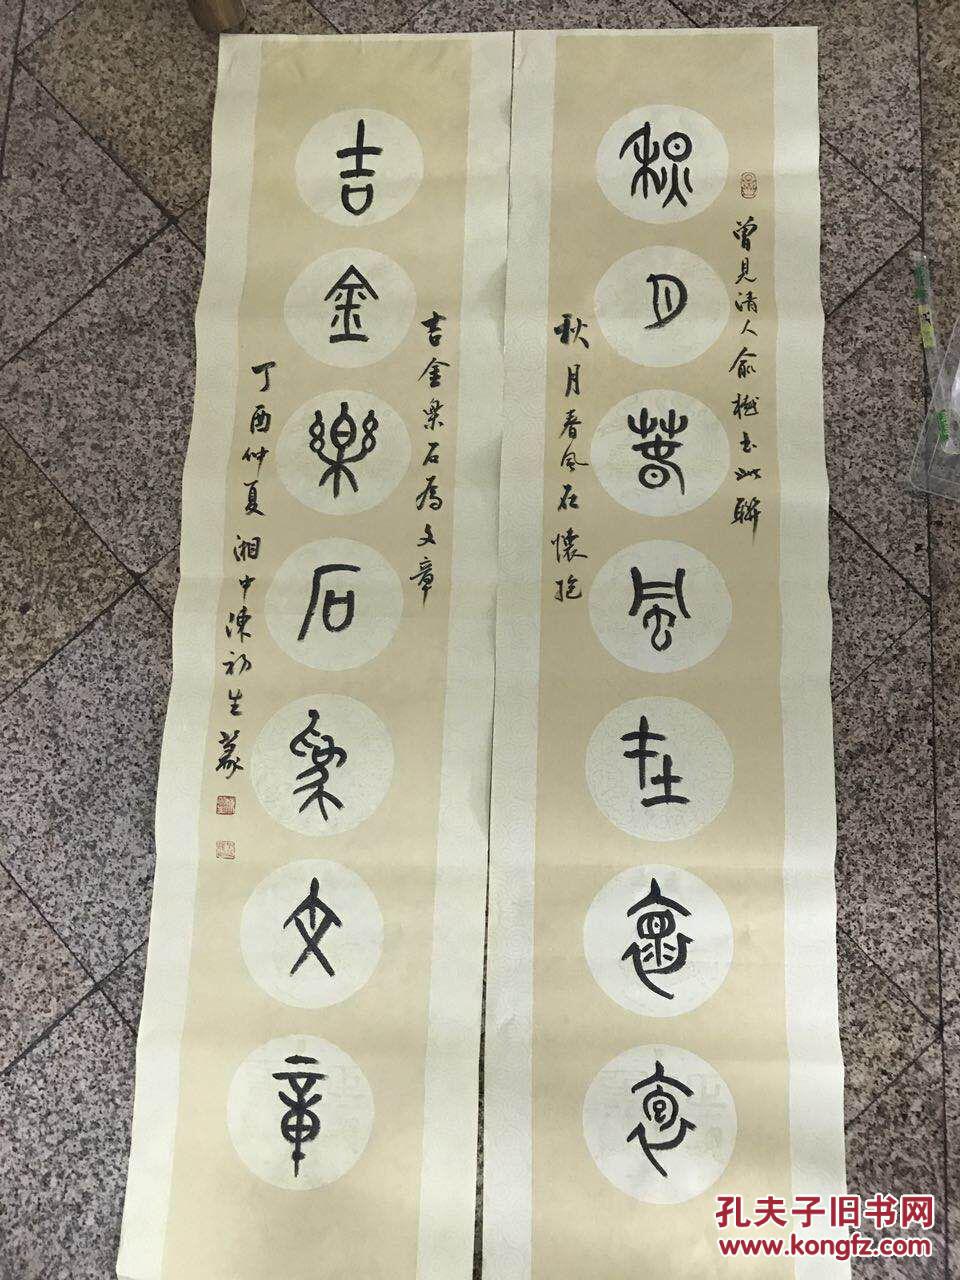 曾見清人俞樾書此聯
秋月春風在懷抱
秋月春風在懷抱
吉金樂石為文章
吉金樂石為文章
丁酉仲夏湘中陳初生篆
孔夫子旧书网
www.kongfz.com